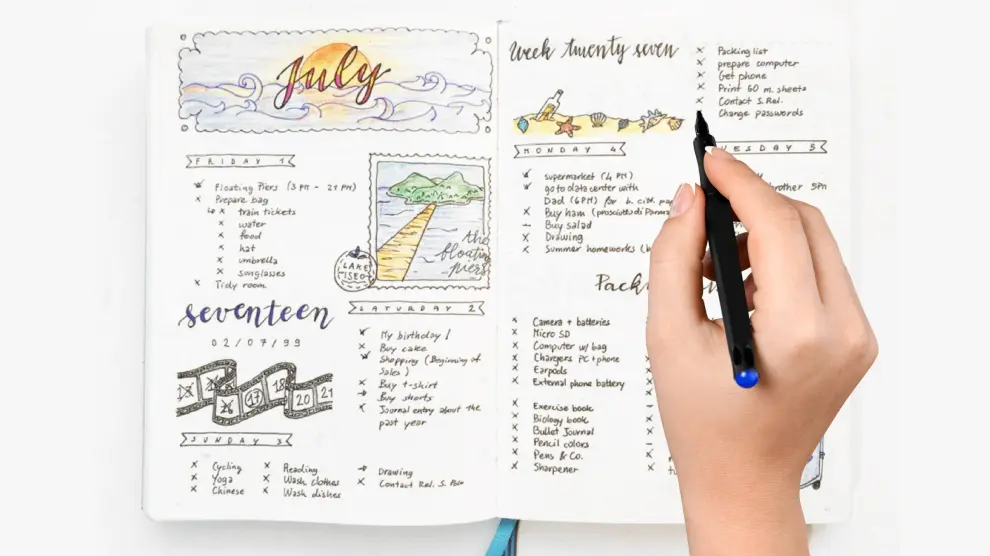 July
FRIDAY 1
Floating Piers (3 PM - 21 PM)
Prepare bag
train tickets
water
food
hat
umbrella
sunglasses
Tidy room
the
floating
piers
LAKE
ISEO
seventeen
02/07/99
16
17
18
20
21
SATURDAY 2
My birthday!
Buy cake
Shopping (Beginning of
Sales)
Buy t-shirt
Buy shorts
Journal entry about the
past year
SUNDAY 3
Cycling
Yoga
Chinese
Reading
Wash clothes
Wash dishes
Drawing
Contact Rel. S.
Week twenty seven
Packing list
prepare computer
Get phone
Print 60 m. sheets
Contact S. Rel.
Change passwords
MONDAY 4
supermarket (4 PM)
go to data center with
Dad (6PM) for
Buy ham (prosciutto di Parma
Buy salad
Drawing
Summer homeworks
UESDAY 5
brother 5PM
Pack
Camera + batteries
Micro SD
Computer w/ bag
Chargers PC + phone
Earpods
External phone battery
Exercise book
Biology book
Bullet Journal
Pencil colors
Pens & Co.
Sharpener